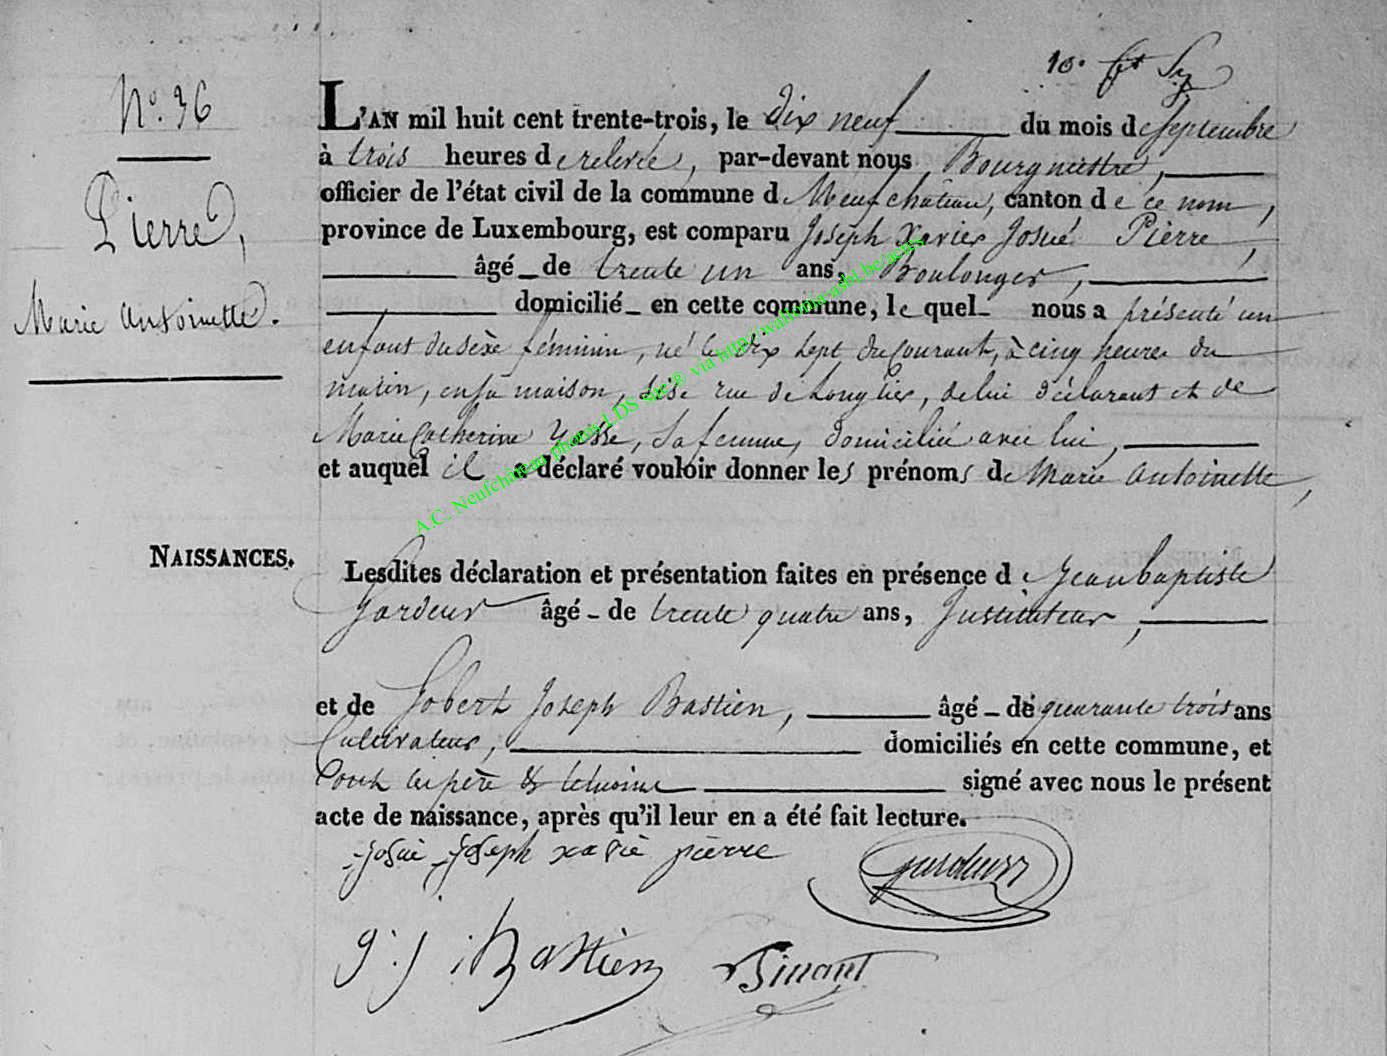 10.
N.° 36
Pierre,
Marie Antoinette.
NAISSANCES.
L'AN mil huit cent trente-trois, le dix neuf du mois de Septembre
à trois heures de relevée, par-devant nous Bourgmestre,
officier de l'état civil de la commune de Neufchâteau, canton de ce nom,
province de Luxembourg, est comparu Joseph Xavier Josué Pierre,
âgé de trente un ans, Boulanger,
domicilié en cette commune, lequel nous a présenté un
enfant du sèxe féminin, né le dix sept du Courant, à cinq heures du
matin, en sa maison, sise rue de Longlier, de lui déclarant et de
Marie Catherine, sa femme, domiciliée avec lui,
et auquel il a déclaré vouloir donner les prénoms de Marie Antoinette,
Lesdites déclaration et présentation faites en présence de Jean baptiste
Gardeur âgé de trente quatre ans, Instituteur,
et de Gobert Joseph Bastien, âgé de quarante trois ans
Cultivateur, domiciliés en cette commune, et
ont les père & témoins signé avec nous le présent
acte de naissance, après qu'il leur en a été fait lecture.
josué joseph xavié pierre
gardeur
g. j. Bastien
Dinant
A.C. Neufchâteau photos LDS site® via http://wallonia-asbl.be/actes